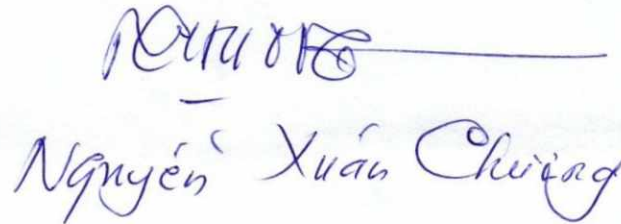 Nguyễn Xuân Chương